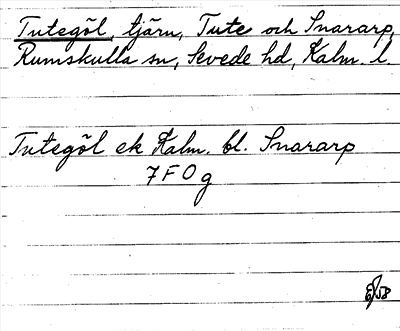 Tutegöl, tjärn, Tute och Snararp,
Rumskulla sn, Sevede hd, Kalm. l.
Tutegöl ek Kalm. bl. Snararp
7 F O g